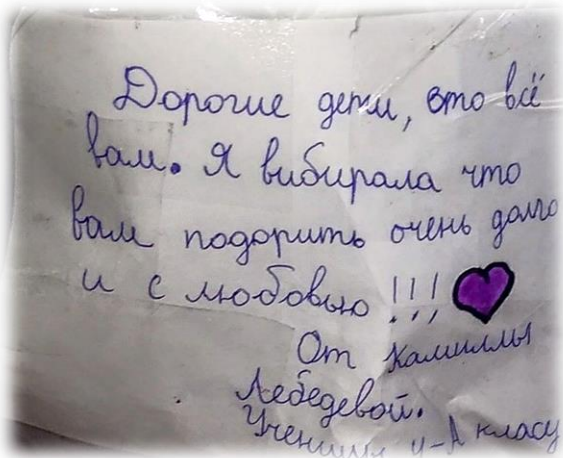 Дорогие дети, это всё
вам. Я вибирала что
вам подорить очень долго
и с любовью !!!
От Камиллы
Лебедевой.
Ученици 4-А класу